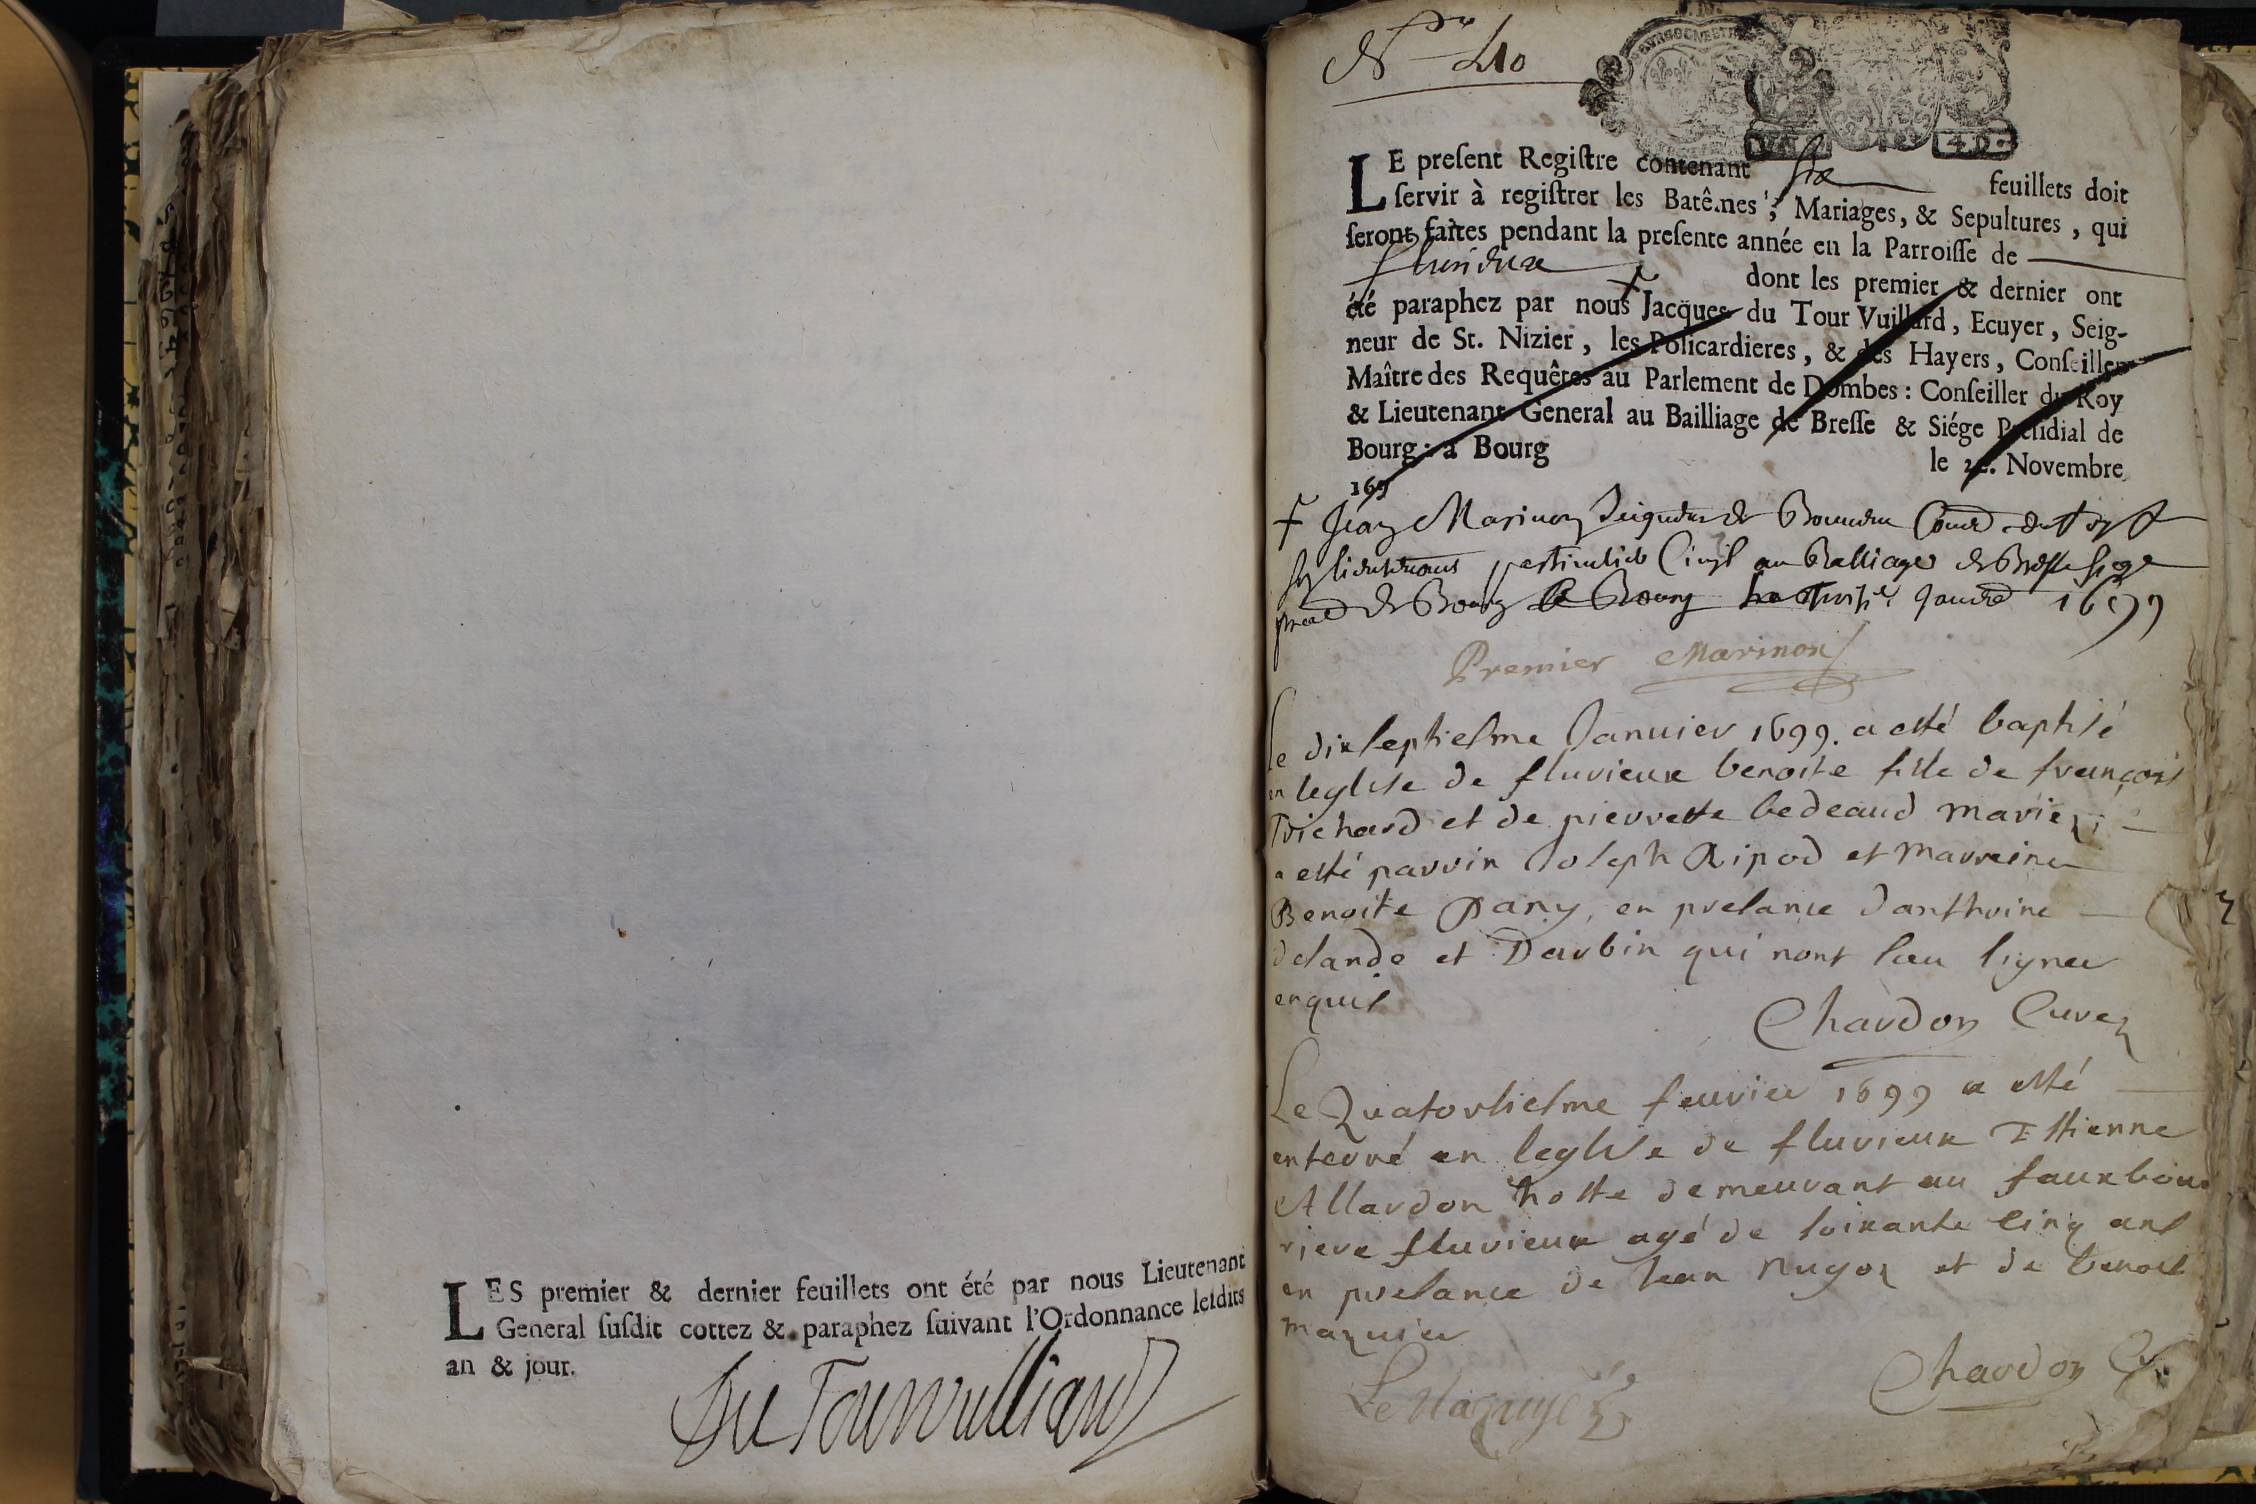 LES premier & dernier feuillets ont été par nous Lieutenant
General ſuſdit cottez & paraphez ſuivant l'Ordonnance leſdits
an & jour.
Du Tourvulliard
N 40
LE preſent Regiſtre contenant six feuillets doit
ſervir à regiſtrer les Batêmes, Mariages, & Sepultures, qui
ſeront faites pendant la preſente année en la Parroiſſe de
fluvieux dont les premier & dernier ont
été paraphez par nous Jacques du Tour Vuillard, Ecuyer, Seig-
neur de St. Nizier, les Policardieres, & des Hayers, Conſeiller
Maître des Requêtes au Parlement de Dombes: Conſeiller du Roy
& Lieutenant General au Bailliage de Breſſe & Siége Preſidial de
Bourg: à Bourg le Novembre
169
Jean Marinon Seigneur de
lieutenant particulier Civil au Balliage de Bresse siege
de Bourg Bourg 1699
Premier Marinon
Le dixseptiesme Januier 1699. a esté baptisé
en leglise de fluvieux benoite fille de françois
Trichard et de pierrette bedeaud mariez,
a esté parrin Joseph Ripod et marreine
Benoite Pany, en presance danthoine
delande et Darbin qui nont sceu signer
enquis
Chardon Curez
Le Quatorsiesme feurier 1699 a esté
enterré en leglise de fluvieux Estienne
Allardon hoste demeurant au fauxbour
riere fluvieux agé de soixante cinq ans
en presance de Jean Nugoz et de benoit
mazuier
Le Mazuyer
Chardon